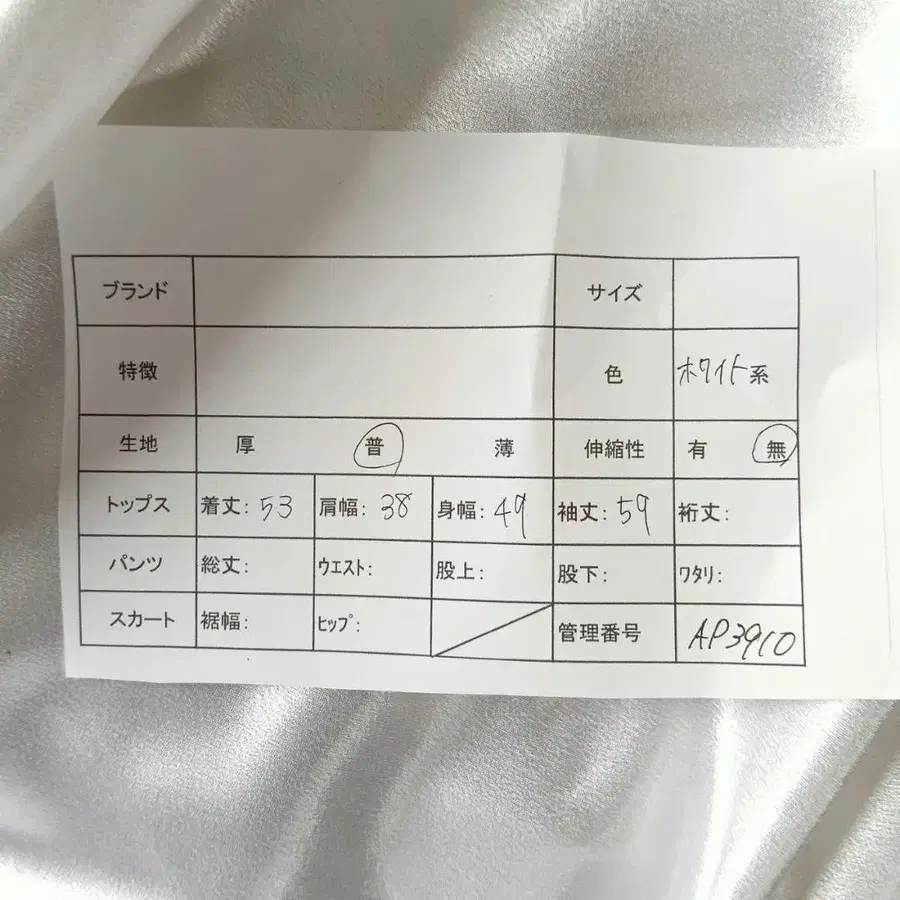 ブランド サイズ
特徴 色 ホワイト系
生地 厚 普 薄 伸縮性 有 無
トップス 着丈: 53 肩幅: 38 身幅: 49 袖丈: 59 裄丈:
パンツ 総丈: ウエスト: 股上: 股下: ワタリ:
スカート 裾幅: ヒップ: 管理番号 AP3910